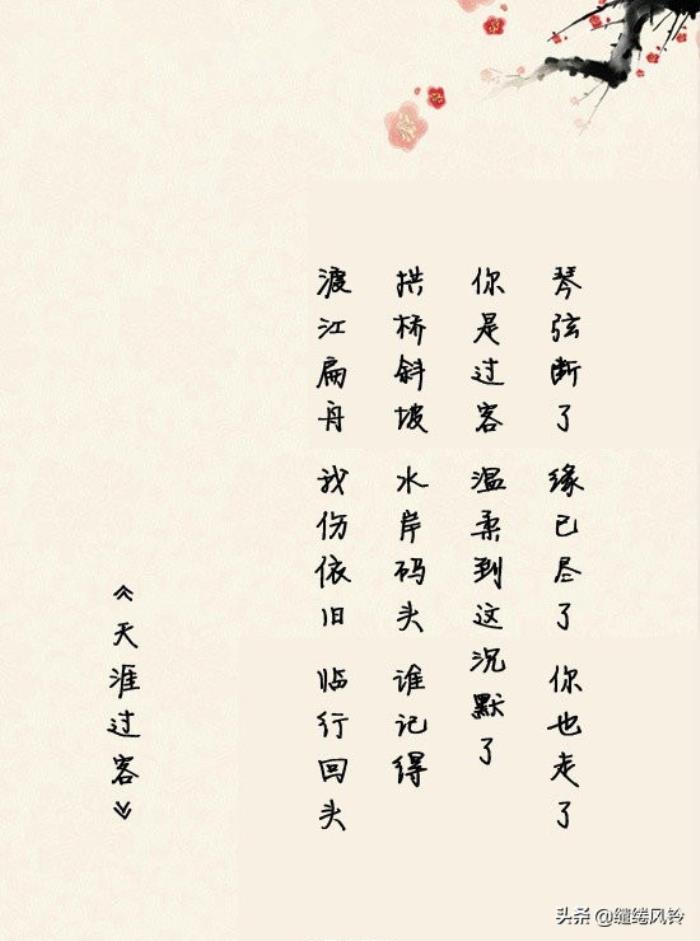 琴弦断了 缘已尽了 你也走了
你是过客 温柔到这沉默了
拱桥斜坡 水岸码头 谁记得
渡江扁舟 我伤依旧 临行回头
《天涯过客》
头条 @缱绻风铃